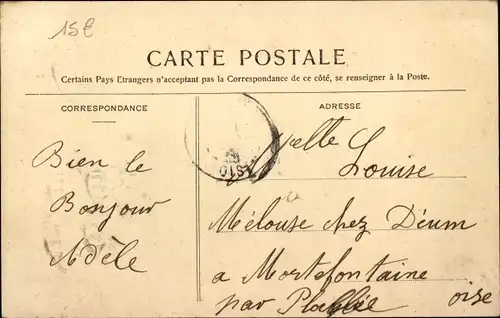 15€
CARTE POSTALE
Certains Pays Etrangers n'acceptant pas la Correspondance de ce côté, se renseigner à la Poste.
CORRESPONDANCE
Bien le
Bonjour
Adèle
ADRESSE
Melle Louise
Mélouse chez
a Mortefontaine
par oise